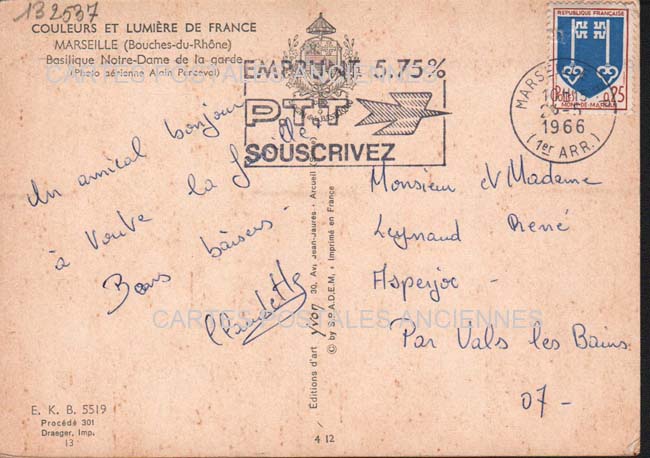 132537
COULEURS ET LUMIÈRE DE FRANCE
MARSEILLE (Bouches-du-Rhône)
Basilique Notre-Dame de la garde
(Photo aérienne Alain Perceval)
Un amical bonjour
à toute la famille
Bons baisers.
Claudette
E. K. B. 5519
Procédé 301
Draeger, Imp.
13
EMPRUNT 5,75%
PTT
SOUSCRIVEZ
Editions d'art yvon 30, Av. Jean-Jaurès - Arcueil
© by S.P.A.D.E.M. - Imprimé en France
4 12
REPUBLIQUE FRANÇAISE
0,25
MONT-DE-MARSAN
1966
(1er ARR.)
Monsieur et Madame
Leynaud René
Asperjoc -
Par Vals les Bains
07-
CARTES POSTALES ANCIENNES
CARTES POSTALES ANCIENNES